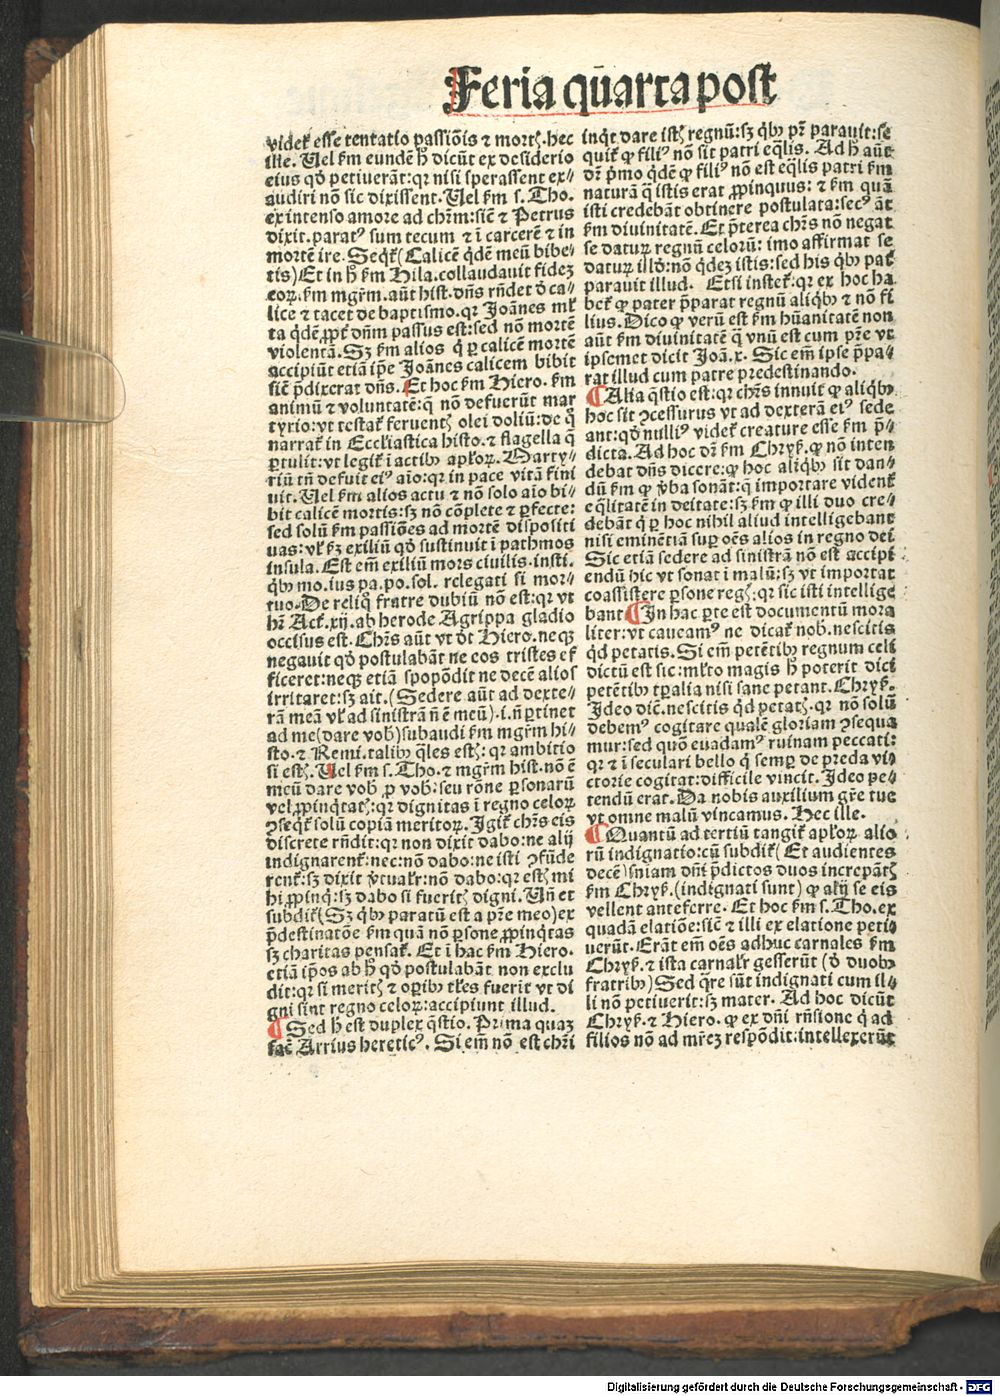 Feria q̄uarta post
videt̄ esse tentatio passiōis ⁊ mortꝭ. hec
ille. Uel ẜm eundē hͦ dicūt ex desiderio
eius qd̓ petiuerāt: qꝛ nisi sperassent ex⸗
audiri nō sic dixissent. Uel ẜm s. Tho.
ex intenso amore ad chr̄m: sic̄ ⁊ Petrus
dixit. paratꝰ sum tecum ⁊ ī carcerē ⁊ in
mortē ire. Seqt̄ (Calicē qdē meū bibe⸗
tis) Et in hͦ ẜm Hila. collaudauit fideꝫ
eoꝝ. ẜm mgr̄m. aūt hist. dn̄s rn̄det d̓ ca⸗
lice ⁊ tacet de baptismo. qꝛ Joānes ml̓
ta qdē, ꝓpt̓ dn̄m passus est: sed nō mortē
violentā. Sꝫ ẜm alios q̇ ꝑ calicē mortē
accipiūt etiā ip̄e Joānes calicem bibit
sic̄ p̄dixerat dn̄s. Et hoc ẜm Hiero. ẜm
animū ⁊ voluntatē: q̄ nō defuerūt mar
tyrio: vt testat̄ feruentꝭ olei doliū: de q̊
narrat̄ in Ecclīastica histo. ⁊ flagella q̄
ꝑtulit: vt legit̄ ī actibꝰ aplꝝ. Marty⸗
riū tn̄ defuit eiꝰ aīo: qꝛ in pace vitā fini
uit. Uel ẜm alios actu ⁊ nō solo aīo bi⸗
bit calicē mortis: sꝫ nō cōplete ⁊ ꝑfecte:
sed solū ẜm passiōes ad mortē dispositi
uas: vl̓ ẜꝫ exiliū qd̓ sustinuit ī pathmos
insula. Est em̄ exiliū mors ciuilis. insti.
qbꝰ mo. ius pa. po. sol. relegati si mor⸗
tuo. De reliq̊ fratre dubiū nō est: qꝛ vt
hr̄ Act̄. xij. ab herode Agrippa gladio
occisus est. Chr̄s aūt vt d̓t Hiero. neqꝫ
negauit qd̓ postulabāt ne eos tristes ef
ficeret: neqꝫ etiā spopōdit ne decē alios
irritaret: sꝫ ait. (Sedere aūt ad dexte⸗
rā meā vl̓ ad sinistrā n̄ ē meū). i. n̄ ꝑtinet
ad me (dare vobꝭ) subaudi ẜm mgr̄m hi⸗
sto. ⁊ Remi. talibꝰ qles estꝭ: qꝛ ambitio
si estꝭ. Uel ẜm s. Tho. ⁊ mgr̄m hist. nō ē
meū dare vobꝭ ꝓ vobꝭ: seu rōne ꝑsonarū
vel ꝓpinq̇tatꝭ: qꝛ dignitas ī regno celoꝝ
ꝯseqt̄ solū copiā meritoꝝ. Igit̄ chr̄s eis
discrete rn̄dit: qꝛ non dixit dabo: ne alij
indignarent̄: nec: nō dabo: ne isti ꝯfūde
rent̄: sꝫ dixit v̓tualr̄: nō dabo: qꝛ estꝭ mi
hi ꝓpinq̇: sꝫ dabo si fueritꝭ digni. Un̄ et
subdit̄ (Sꝫ qbꝰ paratū est a pr̄e meo) ex
p̄destinatōe ẜm quā nō ꝑsone ꝓpinq̇tas
sꝫ charitas pensat̄. Et ī hac ẜm Hiero.
etiā ip̄os ab hͦ qd̓ postulabāt non exclu
dit: qꝛ si meritꝭ ⁊ oꝑibꝰ tl̓es fuerīt vt di
gni sint regno celoꝝ: accipiunt illud.
¶ Sed hͦ est duplex q̄stio. Prima quaꝫ
fac̄ Arrius hereticꝰ. Si em̄ nō est chr̄i
inqt̄ dare istꝭ regnū: sꝫ qbꝰ pr̄ parauit: se
quit̄ ꝙ filiꝰ nō sit patri eq̄lis. Ad hͦ aūt
dr̄ pͥmo qdē ꝙ filiꝰ nō est eq̄lis patri ẜm
naturā q̄ istis erat ꝓpinquus: ⁊ ẜm quā
isti credebāt obtinere postulata: secꝰ āt
ẜm diuinitatē. Et p̄terea chr̄s nō negat
se daturꝝ regnū celorū: imo affirmat se
daturꝝ illd̓: nō qdeꝫ istis: sed his qbꝰ pat̓
parauit illud. Et si instet̄: qꝛ ex hoc ha
bet̄ ꝙ pater p̄parat regnū aliqbꝰ ⁊ nō fi
lius. Dico ꝙ verū est ẜm hūanitatē non
aūt ẜm diuinitatē q̄ vnū est cum pr̄e vt
ipsemet dicit Joā. x. Sic em̄ ipse p̄pa⸗
rat illud cum patre predestinando.
¶ Alia q̄stio est: qꝛ chr̄s innuit ꝙ aliqbꝰ
hoc sit ꝯcessurus vt ad dexterā eiꝰ sede
ant: qd̓ nulliꝰ videt̄ creature esse ẜm p̄⸗
dicta. Ad hoc dr̄ ẜm Chryẜ. ꝙ nō inten
debat dn̄s dicere: ꝙ hoc aliqbꝰ sit dan⸗
dū ẜm ꝙ v̓ba sonāt: q̄ importare vident̄
eq̄litatē in deitate: sꝫ ẜm ꝙ illi duo cre⸗
debāt q̇ ꝑ hoc nihil aliud intelligebant
nisi eminentiā suꝑ oēs alios in regno dei
Sic etiā sedere ad sinistrā nō est accipi
endū hic vt sonat ī malū: sꝫ vt importat
coassistere ꝑsone regꝭ: qꝛ sic isti intellige
bant ¶ In hac ꝑte est documentū mora
liter: vt caueamꝰ ne dicat̄ nob. nescitis
qd̓ petatis. Si em̄ petētibꝰ regnum celi
dictū est sic: ml̓to magis hͦ poterit dici
petētibꝰ tꝑalia nisi sane petant. Chryẜ.
Ideo dic̄. nescitis qd̓ petatꝭ. qꝛ nō solū
debemꝰ cogitare qualē gloriam ꝯsequa
mur: sed quō euadamꝰ ruinam peccati:
qꝛ ⁊ ī seculari bello q̇ semꝑ de preda vi⸗
ctorie cogitat: difficile vincit. Ideo pe⸗
tendū erat. Da nobis auxilium gr̄e tue
vt omne malū vincamus. Hec ille.
¶ Quantū ad tertiū tangit̄ aplꝝ alio
rū indignatio: cū subdit̄ (Et audientes
decē) sn̄iam dn̄i p̄dictos duos increpātꝭ
ẜm Chryẜ. (indignati sunt) ꝙ alij se eis
vellent anteferre. Et hoc ẜm s. Tho. ex
quadā elatiōe: sic̄ ⁊ illi ex elatione peti⸗
uerūt. Erāt em̄ oēs adhuc carnales ẜm
Chryẜ. ⁊ ista carnalr̄ gesserūt (d̓ duobꝰ
fratribꝰ) Sed q̄re sūt indignati cum il⸗
li nō petiuerīt: sꝫ mater. Ad hoc dicūt
Chryẜ. ⁊ Hiero. ꝙ ex dn̄i rn̄sione q̇ ad
filios nō ad mr̄eꝫ respōdit: intellexerūt
Digitalisierung gefördert durch die Deutsche Forschungsgemeinschaft - DFG